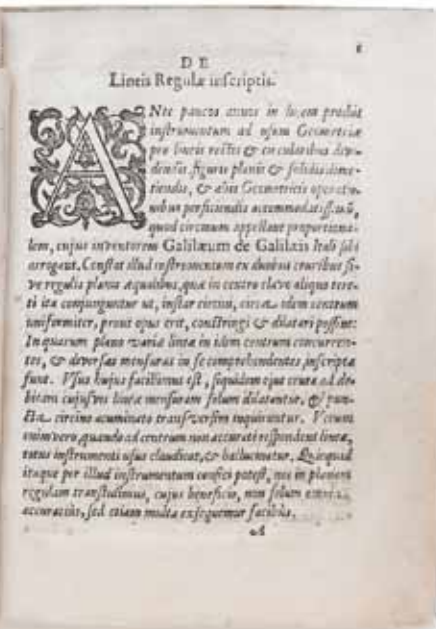 DE
Lineis Regulæ inscriptis.
ANte paucos annos in lucem prodiit
instrumentum ad usum Geometriæ
pro lineis rectis & circularibus divi-
dendis, figuris planis & solidis dime-
tiendis, & aliis Geometricis operatio-
nibus perficiendis accommodatissimũ,
quod circinum appellant proportiona-
lem, cujus inventorem Galilæum de Galilæis Itali sibi
arrogant. Constat illud instrumentum ex duobus cruribus si-
ve regulis planis æqualibus, quæ in centro clavo aliquo tere-
ti ita conjunguntur ut, instar circini, circa idem centrum
uniformiter, prout opus erit, constringi & dilatari possint:
In quarum plano variæ lineæ in idem centrum concurren-
tes, & diversas mensuras in se comprehendentes, inscriptæ
sunt. Usus hujus facillimus est, siquidem ejus crura ad de-
bitam cujusvis lineæ mensuram solum dilatantur, & pun-
cta circino acuminato transversim inquiruntur. Verum
enimvero, quando ad centrum non accurate respondent lineæ,
totus instrumenti usus claudicat, & hallucinatur. Quicquid
itaque per illud instrumentum confici potest, nos in planam
regulam transtulimus, cujus beneficio, non solum
accuratius, sed etiam multa exsequemur facilius.